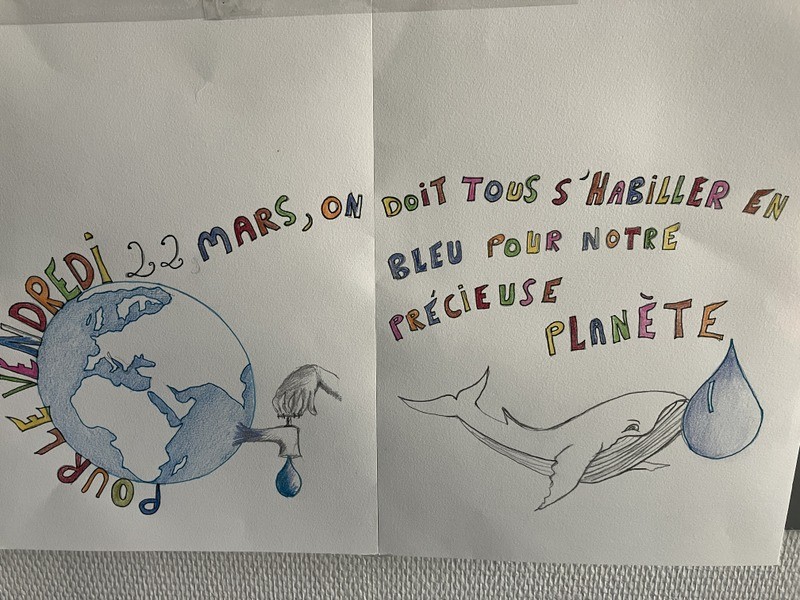 POUR LE VENDREDI 22 MARS, ON DOIT TOUS S'HABILLER EN
BLEU POUR NOTRE
PRÉCIEUSE
PLANÈTE